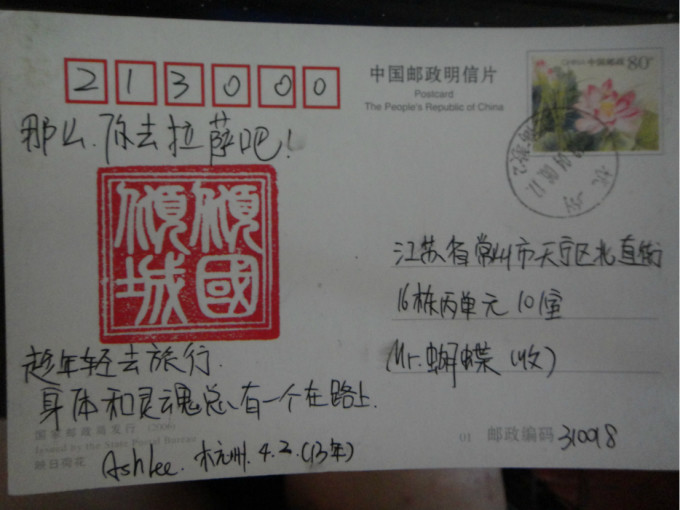 213000
中国邮政明信片
Postcard
The People's Republic of China
中国邮政 80分
那么,你去拉萨吧!
倾國
倾城
江苏省常州市天宁区北直街
16栋丙单元101室
Mr.蝴蝶(收)
趁年轻去旅行.
身体和灵魂总有一个在路上.
国家邮政局发行 (2006)
Issued by the State Postal Bureau
映日荷花
Ashlee. 杭州. 4.2.(13年)
01 邮政编码 310018